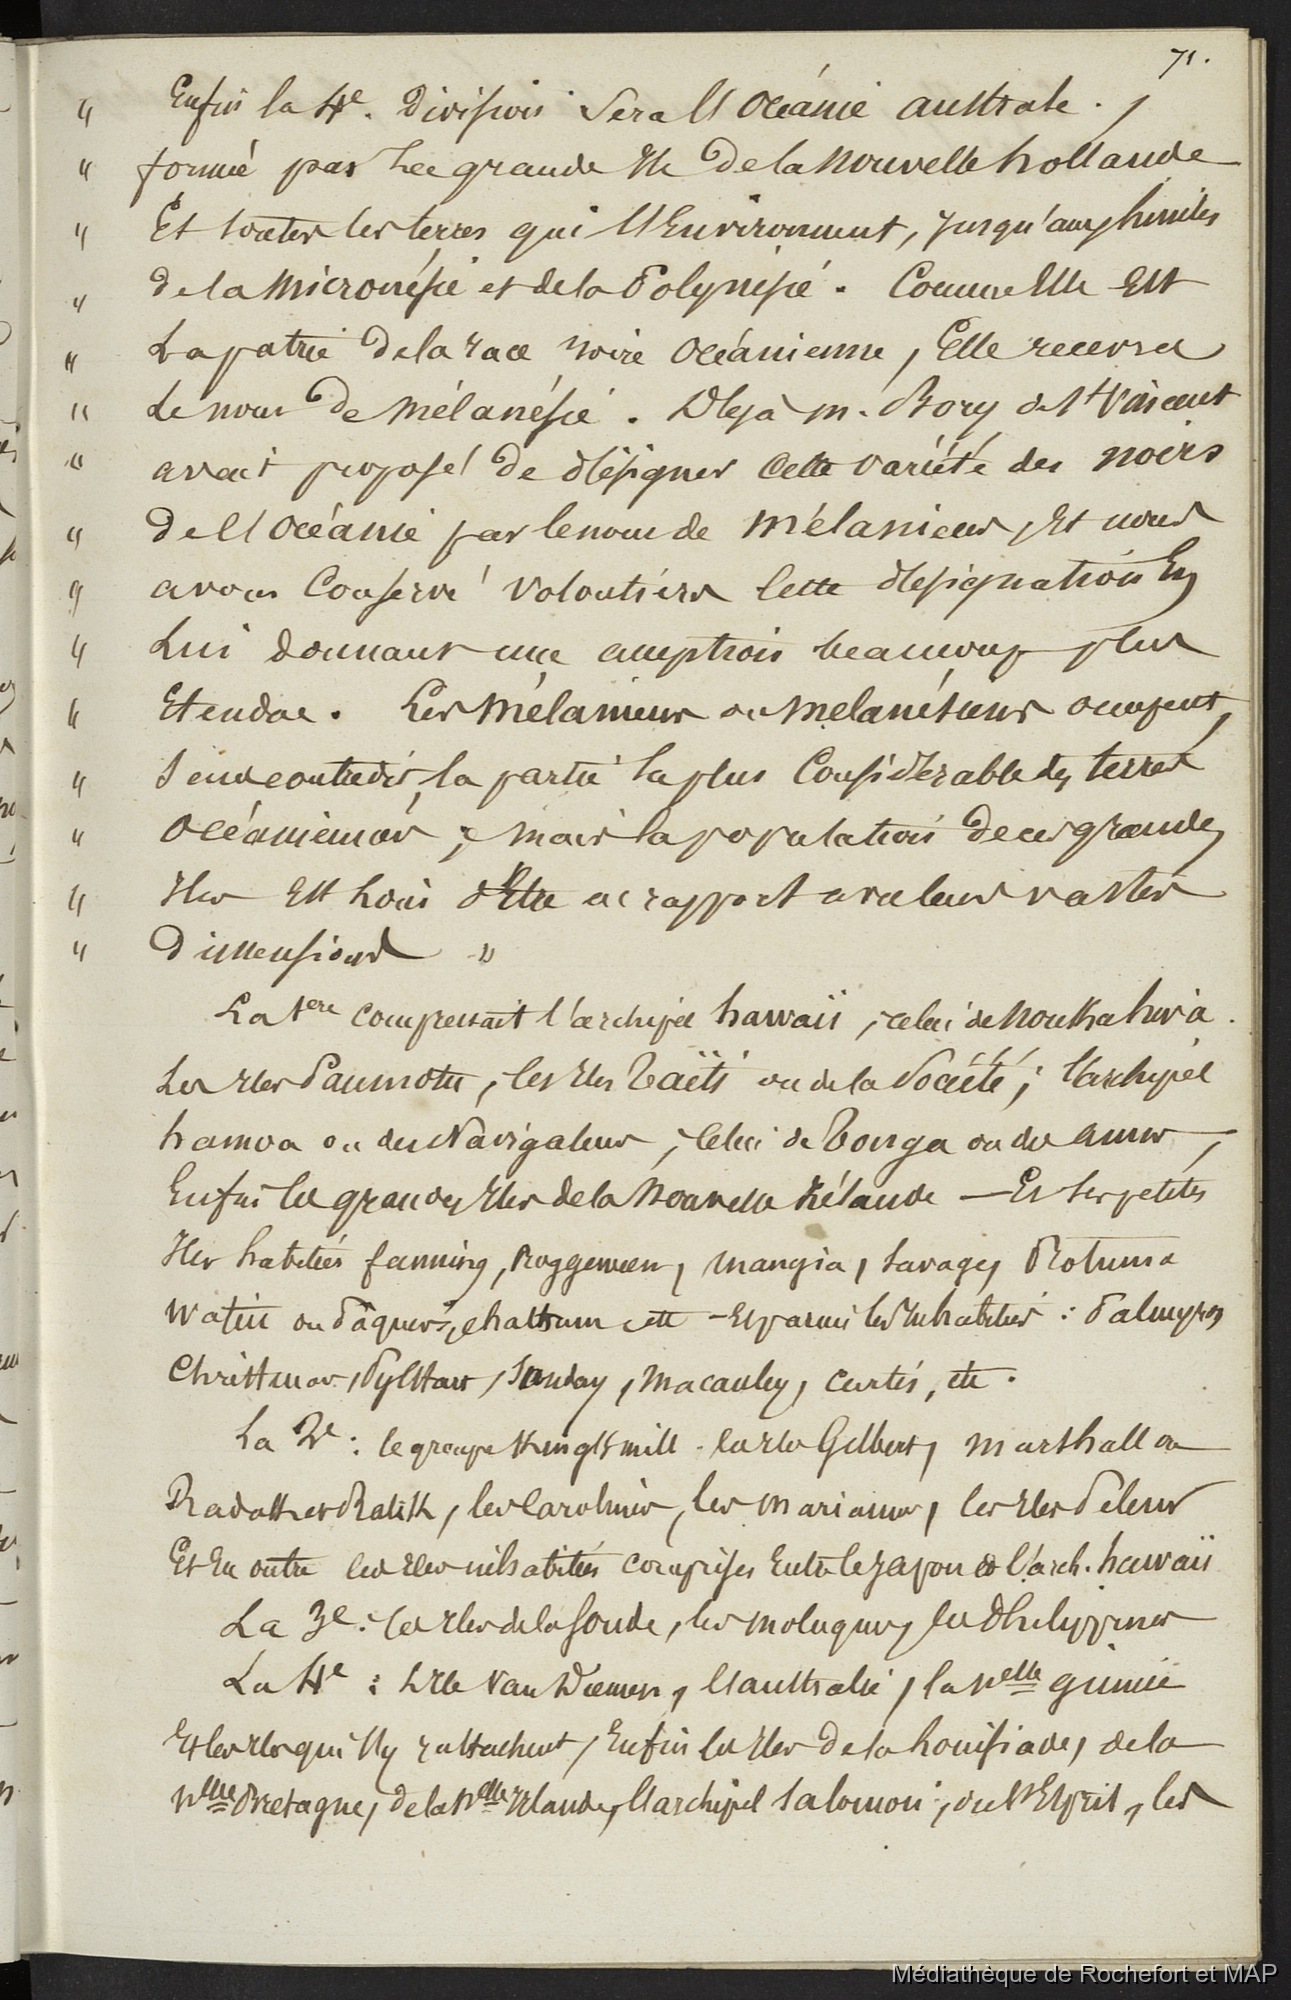 71.
" Enfin la 4e. Division sera l'Océanie australe,
" formée par La grande Ile de la nouvelle hollande
" Et toutes les terres qui l'Environnent, jusqu'aux limites
" de la Micronésie et de la Polynésie. Comme Elle Est
" La patrie de la race noire Océanienne, Elle recevra
" Le nom de Mélanésie. Déja M. Bory de St Vincent
" avait proposé de désigner Cette variété des noirs
" de l'Océanie par le nom de Mélaniens, Et nous
" avons Conservé volontiers Cette désignation En
" Lui donnant une acception beaucoup plus
" Etendue. Les Mélaniens ou Mélanésiens occupent,
" sans contredit, la partie la plus Considérable des terres
" Océaniennes ; mais la population de ces grandes
" Iles Est loin d'Etre en rapport avec leurs vastes
" Dimensions "
La 1ere comprenait l'archipel hawaïi, celui de Noukahiva.
Les Iles Paumotu, les Iles Taïti ou de la Société ; l'archipel
hamoa ou des Navigateurs, Celui de Tonga ou des amis,
Enfin les grandes Iles de la Nouvelle Zélande — Et les petites
Iles habitées fanning, Roggeween, Mangia, Savage, Rotuma
Watiu ou Pâques, chattam, etc - Et parmi les Inhabitées : Palmyras
Christmas, Pylstart, Sunday, Macauley, Curtis, etc.
La 2e : le groupe Kingsmill - les Iles Gilbert, Marshall ou
Radak et Ralik, les Carolines, les Mariannes, les Iles Pelew
Et En outre les Iles inhabitées comprises Entre le Japon et l'arch. hawaïi
La 3e : les Iles de la Sonde, les Moluques, les Philippines
La 4e : L'Ile Van Diemen, l'australie, la Nelle guinée
Et les Iles qui s'y rattachent, Enfin les Iles de la Louisiade, de la
Nelle Bretagne, de la Nelle Irlande, l'archipel Salomon, du St Esprit, les
Médiathèque de Rochefort et MAP